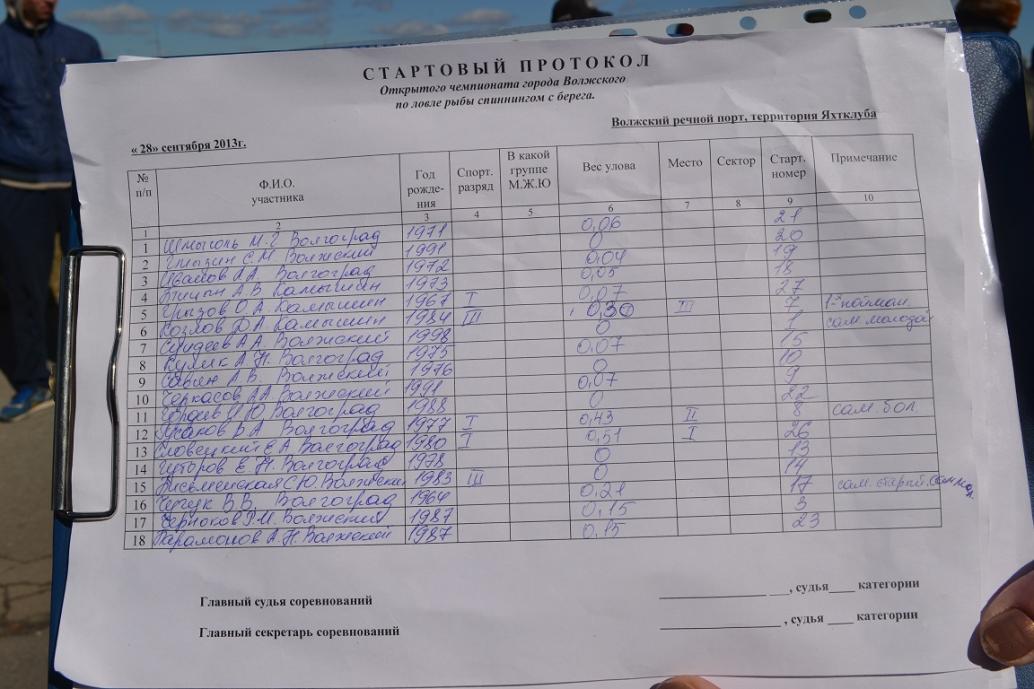 СТАРТОВЫЙ ПРОТОКОЛ
Открытого чемпионата города Волжского
по ловле рыбы спиннингом с берега.
Волжский речной порт, территория Яхтклуба
« 28» сентября 2013г.
№ п/п Ф.И.О. участника Год рожде-ния Спорт. разряд В какой группе М.Ж.Ю Вес улова Место Сектор Старт. номер Примечание
1 2 3 4 5 6 7 8 9 10
1 Шмыголь М.Г Волгоград 1971 0,06 21
2 С.М. Волжский 1991 0 20
3 Иванов А.А. Волгоград 1972 0,04 19
4 Птицын А.В. Камышин 1973 0,05 18
5 Грызов О.А. Камышин 1967 I 0,07 27
6 Козлов Д.А. Камышин 1984 III 0,30 III 7 1-й пойман.
7 А.А. Волжский 1998 0 1 сам. молодой
8 Кулик А.Н. Волгоград 1975 0,07 15
9 Савин А.В. Волжский 1976 0 10
10 Черкасов А.А. Волжский 1991 0,07 9
11 Ю. Волгоград 1988 0 22
12 Усаков В.А. Волгоград 1977 I 0,43 II 8 сам. бол.
13 Словецкий Е.А. Волгоград 1980 I 0,51 I 26
14 Гуторов Е.Н. Волгоград 1978 0 13
15 Письменская С.Ю. Волжский 1983 III 0 14
16 В.В. Волгоград 1964 0,21 17 сам. старый.
17 Волжский 1987 0,15 3
18 Парамонов А.Н. Волжский 1987 0,15 23
Главный судья соревнований ___, судья___ категории
Главный секретарь соревнований ___, судья___ категории